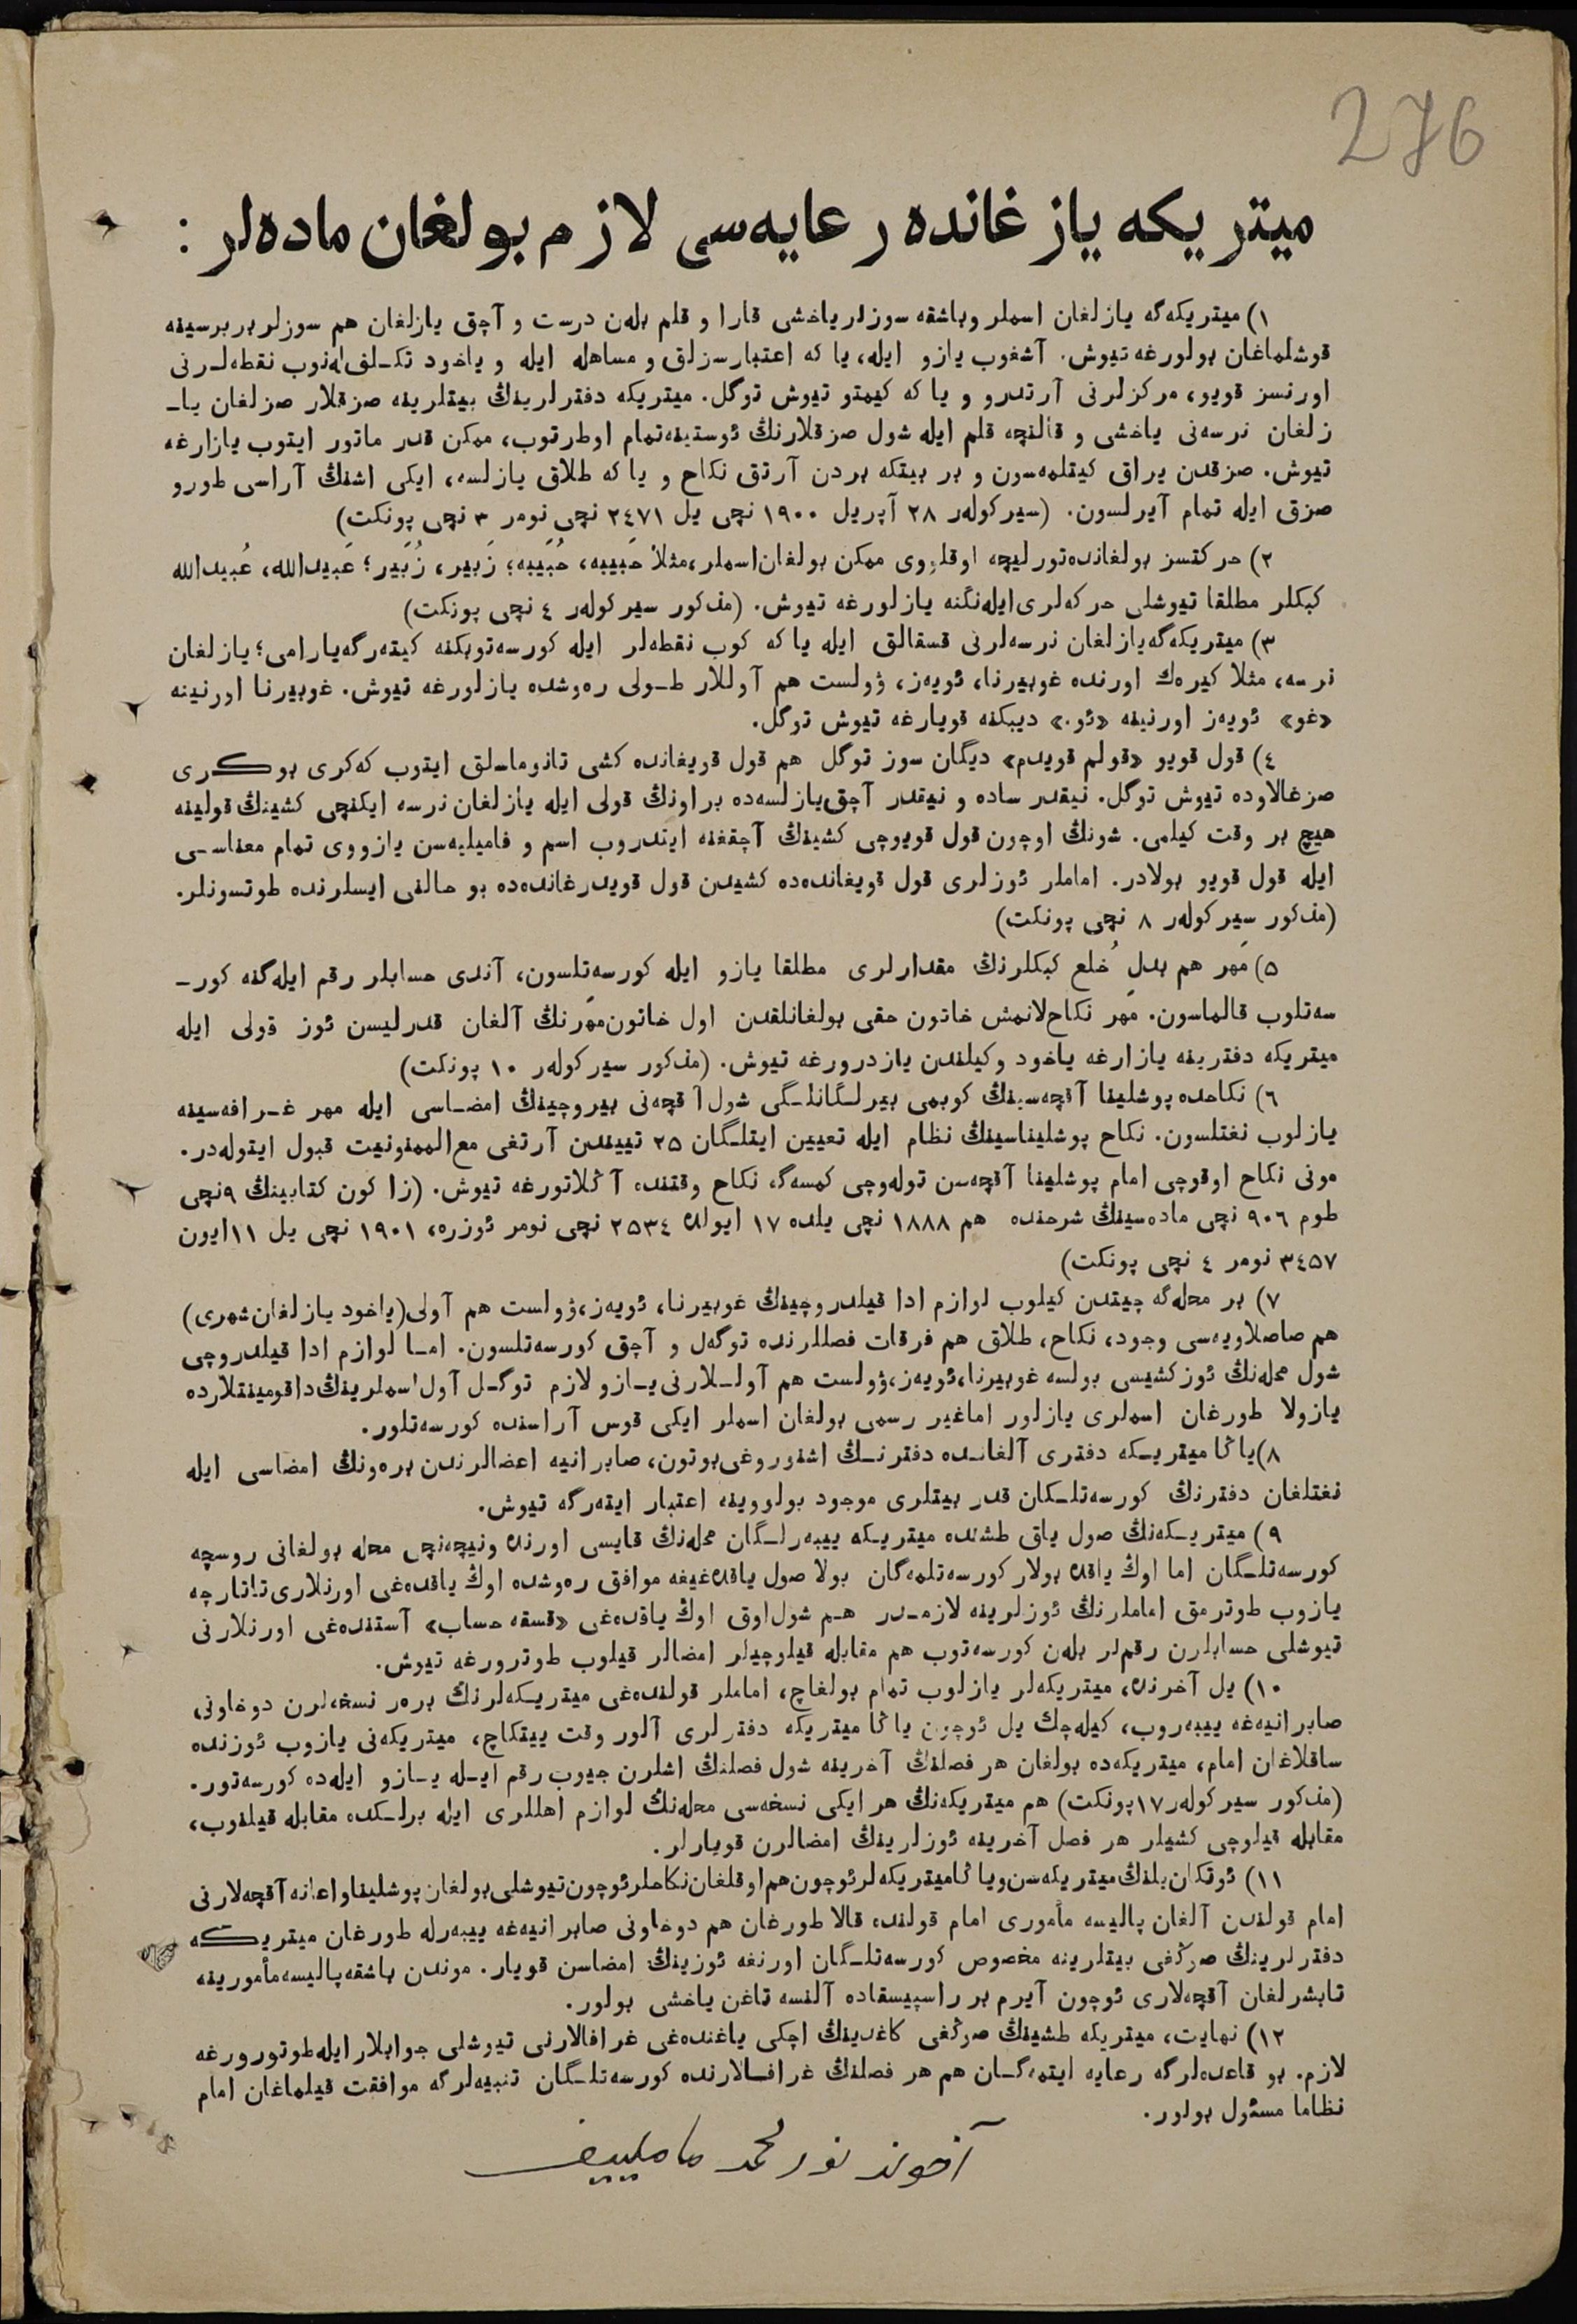 276
ميتريكه يازغانده رعايه‌سى لازم بولغان ماده‌لر :
١) ميتريكه‌گه يازلغان اسملر وباشقه سوزلر ياخشى قارا و قلم بله‌ن درست و آچق يازلغان هم سوزلر بربرسينه
قوشلماغان بولورغه تيوش. آشغوب يازو ايله، ياكه اعتبارسزلق و مساهله ايله و ياخود تكلف له‌نوب نقطه‌لرنى
اورنسز قويو، مركزلرنى آرتدرو و ياكه كيمتو تيوش توگل. ميتريكه دفترلرينڭ بيتلرينه صزقلار صزلغان يا-
زلغان نرسه‌نى ياخشى و قالنچه قلم ايله شول صزقلارنڭ ئوستينه تمام اوطرتوب، ممكن قدر ماتور ايتوب يازارغه
تيوش. صزقدن يراق كيتلمه‌سون و بر بيتكه بردن آرتق نكاح و ياكه طلاق يازلسه، ايكى اشنڭ آراسى طورو
صزق ايله تمام آيرلسون. (سيركولەر ٢٨ آپريل ١٩٠٠ نچى يل ٢٤٧١ نچى نومر ٣ نچى پونكت)
٢) حركتسز بولغانده تورليچه اوقلووى ممكن بولغان اسملر، مثلا حَبيبه، حُبَيبه؛ زَبير، زُبَير؛ عَبيدالله، عُبيدالله
كبكلر مطلقا تيوشلى حركه‌لرى ايله‌نگنه يازلورغه تيوش. (مذكور سيركولەر ٤ نچى پونكت)
٣) ميتريكه‌گه يازلغان نرسه‌لرنى قسقالق ايله ياكه كوب نقطه‌لر ايله كورسه‌توبكنه كيته‌رگه يارامى؛ يازلغان
نرسه، مثلا كيره‌ك اورنده غوبيرنا، ئويه‌ز، ۋولست هم آوللار طولى ره‌وشده يازلورغه تيوش. غوبيرنا اورنينه
«غو» ئويه‌ز اورنينه «ئو.» ديبكنه قويارغه تيوش توگل.
٤) قول قويو «قولم قويدم» ديگان سوز توگل هم قول قويغانده كشى تانوماسلق ايتوب كه‌كرى بوكرى
صزغالاوده تيوش توگل. نيقدر ساده و نيقدر آچق يازلسه‌ده براونڭ قولى ايله يازلغان نرسه ايكنچى كشينڭ قولينه
هيچ بر وقت كيلمى. شونڭ اوچون قول قويوچى كشينڭ آچقغنه ايتدروب اسم و فاميليه‌سن يازووى تمام معناسى
ايله قول قويو بولادر. اماملر ئوزلرى قول قويغانده‌ده كشيدن قول قويدرغانده‌ده بو حالنى ايسلرنده طوتسونلر.
(مذكور سيركولەر ٨ نچى پونكت)
٥) مَهر هم بدلِ خُلع كبكلرنڭ مقدارلرى مطلقا يازو ايله كورسه‌تلسون، آندى حسابلر رقم ايله‌گنه كور-
سه‌تلوب قالماسون. مَهر نكاح‌لانمش خاتون حقى بولغانلقدن اول خاتون مَهرنڭ آلغان قدرليسن ئوز قولى ايله
ميتريكه دفترينه يازارغه ياخود وكيلندن يازدرورغه تيوش. (مذكور سيركولەر ١٠ پونكت)
٦) نكاحده پوشلينا آقچه‌سينڭ كوبمى بيرلگانلگى شول آقچه‌نى بيروچينڭ امضاسى ايله مهر غرافه‌سينه
يازلوب نغتلسون. نكاح پوشليناسينڭ نظام ايله تعيين ايتلگان ٢٥ تييندن آرتغى مع الممنونيت قبول ايتوله‌در.
مونى نكاح اوقوچى امام پوشلينا آقچه‌سن توله‌وچى كمسه‌گه نكاح وقتنده آڭلاتورغه تيوش. (زاكون كتابينڭ ٩نچى
طوم ٩٠٦ نچى ماده‌سينڭ شرحنده هم ١٨٨٨ نچى يلده ١٧ ايولده ٢٥٣٤ نچى نومر ئوزره، ١٩٠١ نچى يل ١١ايون
٣٤٥٧ نومر ٤ نچى پونكت)
٧) بر محله‌گه چيتدن كيلوب لوازم ادا قيلدروچينڭ غوبيرنا، ئويه‌ز، ۋولست هم آولى (ياخود يازلغان شهرى)
هم صاصلاويه‌سى وجود، نكاح، طلاق هم فرقات فصللرنده توگه‌ل و آچق كورسه‌تلسون. اما لوازم ادا قيلدروچى
شول محله‌نڭ ئوز كشيسى بولسه غوبيرنا، ئويه‌ز، ۋولست هم آوللارنى يازو لازم توگل آول اسملرينڭ داقومينتلارده
يازولا طورغان اسملرى يازلور اماغير رسمى بولغان اسملر ايكى قوس آراسنده كورسه‌تلور.
٨) ياڭا ميتريكه دفترى آلغانده دفترنڭ اشنوروغى بوتون، صابرانيه اعضالرندن بره‌ونڭ امضاسى ايله
نغتلغان دفترنڭ كورسه‌تلكان قدر بيتلرى موجود بولووينه اعتبار ايته‌رگه تيوش.
٩) ميتريكه‌نڭ صول ياق طشنده ميتريكه ييبه‌رلگان محله‌نڭ قايسى اورنده ونيچه‌نچى محله بولغانى روسچه
كورسه‌تلگان اما اوڭ ياقده بولار كورسه‌تلمه‌گان بولا صول ياقده‌غيغه موافق ره‌وشده اوڭ ياقده‌غى اورنلارى تاتارچه
يازوب طوترمق اماملرنڭ ئوزلرينه لازمدر هم شول اوق اوڭ ياقده‌غى «قسقه حساب» آستنده‌غى اورنلارنى
تيوشلى حسابلرن رقم‌لر بله‌ن كورسه‌توب هم مقابله قيلوچيلر امضالر قيلوب طوترورغه تيوش.
١٠) يل آخرنده، ميتريكه‌لر يازلوب تمام بولغاچ، اماملر قولنده‌غى ميتريكه‌لرنڭ بره‌ر نسخه‌لرن دوخاونى
صابرانيه‌غه ييبه‌روب، كيله‌چك يل ئوچون ياڭا ميتريكه دفترلرى آلور وقت ييتكاچ، ميتريكه‌نى يازوب ئوزنده
ساقلاغان امام، ميتريكه‌ده بولغان هر فصلنڭ آخرينه شول فصلنڭ اشلرن جيوب رقم ايله يازو ايله‌ده كورسه‌تور.
(مذكور سيركولەر ١٧پونكت) هم ميتريكه‌نڭ هر ايكى نسخه‌سى محله‌نڭ لوازم اهللرى ايله برلكده مقابله قيلنوب،
مقابله قيلوچى كشيلر هر فصل آخرينه ئوزلرينڭ امضالرن قويارلر.
١١) ئوتكان يلنڭ ميتريكه‌سن وياڭا ميتريكه‌لر ئوچون هم اوقلغان نكاحلر ئوچون تيوشلى بولغان پوشلينا واعانه آقچه‌لارنى
امام قولندن آلغان پاليسه مأمورى امام قولنده قالا طورغان هم دوخاونى صابرانيه‌غه ييبه‌رله طورغان ميتريكه
دفترلرينڭ صوڭغى بيتلرينه مخصوص كورسه‌تلگان اورنغه ئوزينڭ امضاسن قويار. موندن باشقه پاليسه مأمورينه
تابشرلغان آقچه‌لارى ئوچون آيرم بر راسپيسقاده آلنسه تاغن ياخشى بولور.
١٢) نهايت، ميتريكه طشينڭ صوڭغى كاغدينڭ اچكى ياغنده‌غى غرافالارنى تيوشلى جوابلار ايله طوتورورغه
لازم. بو قاعده‌لرگه رعايه ايتمه‌گان هم هر فصلنڭ غرافالارنده كورسه‌تلگان تنبيه‌لرگه موافقت قيلماغان امام
نظاما مسئول بولور.
آخوند نورمحمد مامليييف